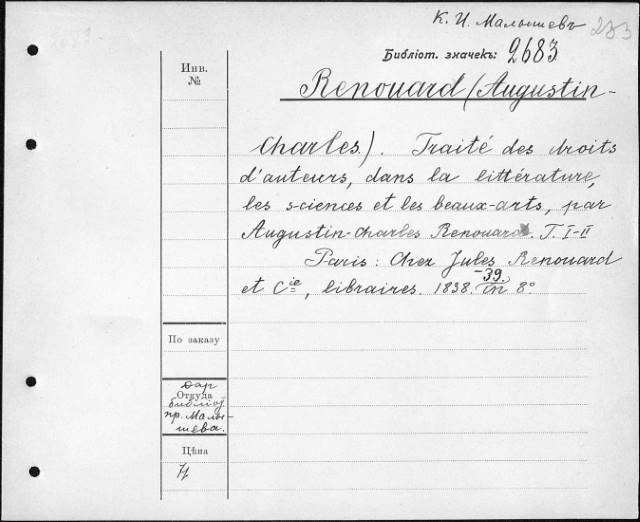 К. И. Малышевъ 233
Библіот. значекъ: 2683
Инв.
№
Renouard (Augustin-
Charles). Traité des droits
d'auteurs, dans la littérature,
les sciences et les beaux-arts, par
Augustin-Charles Renouard. T. I-II
Paris: Chez Jules Renouard
et Cie, libraires. 1838-39. in 8°.
По заказу
Даръ
Откуда
библіот.
пр. Малы-
шева.
Цѣна